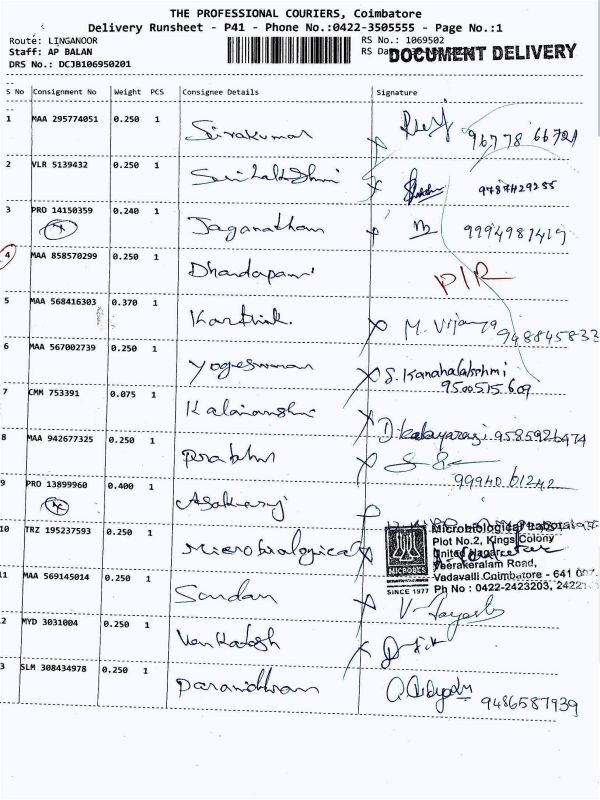 THE PROFESSIONAL COURIERS, Coimbatore
Delivery Runsheet - P41 - Phone No.:0422-3505555 - Page No.:1
Route: LINGANOOR RS No.: 1069502
Staff: AP BALAN RS Da DOCUMENT DELIVERY
DRS No.: DCJB106950201
S No Consignment No Weight PCS Consignee Details Signature
1 MAA 295774051 0.250 1 Sivakumar 96778 66721
2 VLR 5139432 0.250 1 Srilakshmi 9787429255
3 PRO 14150359 0.240 1 Jaganathan 9994987419
4 MAA 858570299 0.250 1 Dhandapani P/R
5 MAA 568416303 0.370 1 Karthik. M. Vijaya 948845833
6 MAA 567002739 0.250 1 Yogeswaran S. Kanahalakshmi
9500515609
7 CMM 753391 0.075 1 Kalaivanshi
D. kalayarasi 9585926474
8 MAA 942677325 0.250 1 Prabhu
99940 61242
9 PRO 13899960 0.400 1 Asokraj
10 TRZ 195237593 0.250 1 Microbiological
Microbiological Laborat
Plot No.2, Kings Colony
United Nagar
Veerakeralam Road,
MICROBES Vadavalli Coimbatore - 641 007
SINCE 1977 Ph No : 0422-2423203, 2422
11 MAA 569145014 0.250 1 Sandan
2 MYD 3031004 0.250 1 Venkatesh
3 SLM 308434978 0.250 1 Paranidharan 9486587939